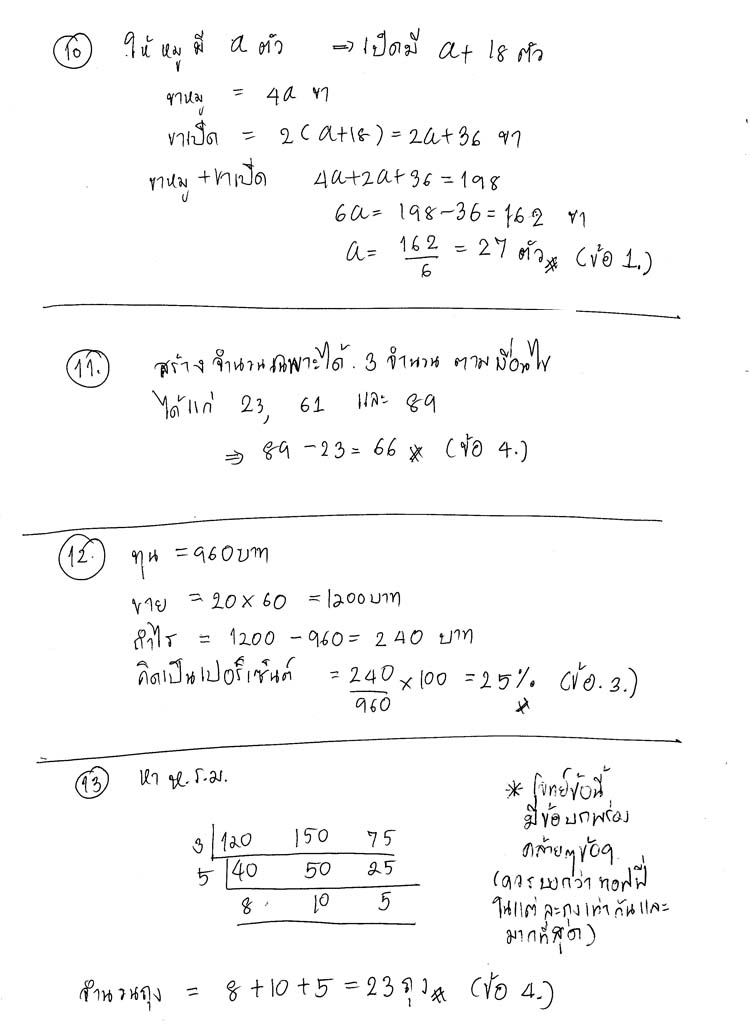 10 ให้หมูมี a ตัว ⇒ เป็ดมี a + 18 ตัว
ขาหมู = 4a ขา
ขาเป็ด = 2(a+18) = 2a+36 ขา
ขาหมู + ขาเป็ด 4a+2a+36 = 198
6a = 198-36 = 162 ขา
a = 162/6 = 27 ตัว* (ข้อ 1.)
11. สร้างจำนวนเฉพาะได้ 3 จำนวน ตามเงื่อนไข
ได้แก่ 23, 61 และ 89
⇒ 89 - 23 = 66 * (ข้อ 4.)
12. ทุน = 960 บาท
ขาย = 20 × 60 = 1200 บาท
กำไร = 1200 - 960 = 240 บาท
คิดเป็นเปอร์เซ็นต์ = 240/960 × 100 = 25% * (ข้อ. 3.)
13 หา ห.ร.ม.
3 120 150 75
5 40 50 25
8 10 5
* โจทย์ข้อนี้
มีข้อบกพร่อง
คล้ายๆข้อ 9
(ควรบอกว่า ทอฟฟี่
ในแต่ละถุงเท่ากันและ
มากที่สุด)
จำนวนถุง = 8 + 10 + 5 = 23 ถุง* (ข้อ 4.)